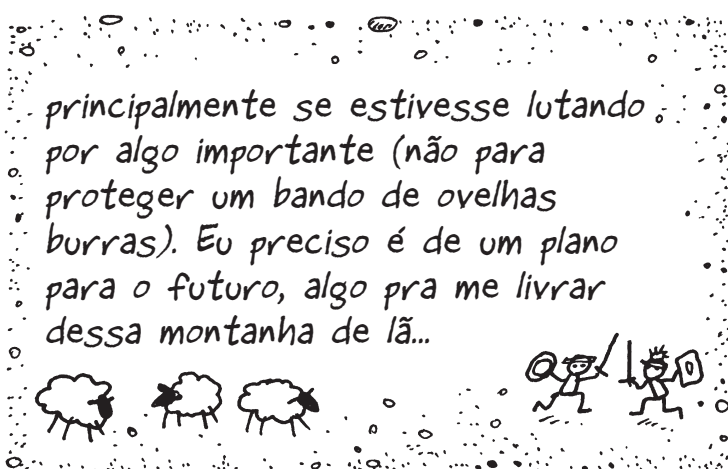 principalmente se estivesse lutando
por algo importante (não para
proteger um bando de ovelhas
burras). Eu preciso é de um plano
para o futuro, algo pra me livrar
dessa montanha de lã...